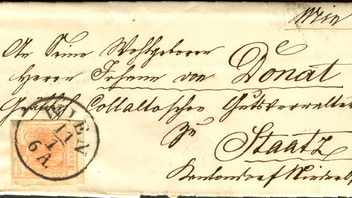 Wien
An Seine Wohlgeboren
Herrn Johann von Donat
Gräflich Collalto'schen Gutsverwalter
zu
Staatz
WIEN
11
7
6 A.